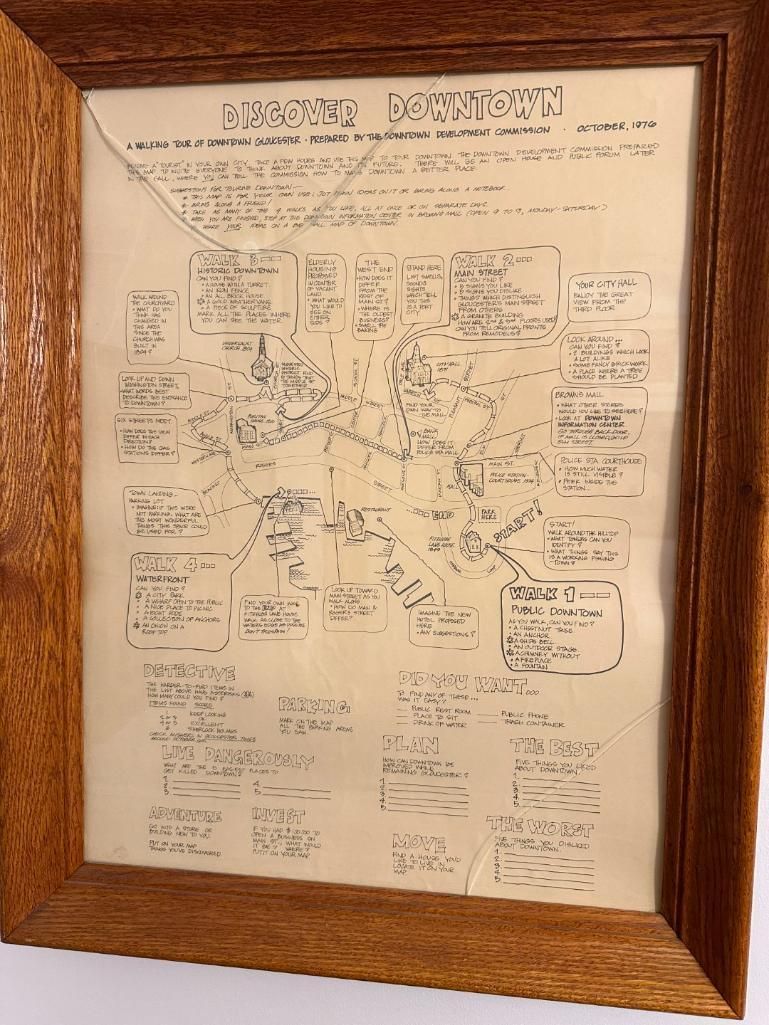 DISCOVER DOWNTOWN
A WALKING TOUR OF DOWNTOWN GLOUCESTER · PREPARED BY THE DOWNTOWN DEVELOPMENT COMMISSION · OCTOBER, 1976
"TOURIST" IN YOUR OWN CITY. TAKE A FEW HOURS AND USE THIS MAP TO TOUR DOWNTOWN. THE DOWNTOWN DEVELOPMENT COMMISSION PREPARED
THIS MAP TO INVITE EVERYONE TO THINK ABOUT DOWNTOWN AND ITS FUTURE. THERE WILL BE AN OPEN HOUSE AND PUBLIC FORUM LATER
IN THE FALL, WHERE YOU CAN TELL THE COMMISSION HOW TO MAKE DOWNTOWN A BETTER PLACE.
SUGGESTIONS FOR TOURING DOWNTOWN —
THIS MAP IS FOR YOUR OWN USE: JOT DOWN IDEAS ON IT OR BRING ALONG A NOTEBOOK.
BRING ALONG A FRIEND!
TAKE AS MANY OF THE 4 WALKS AS YOU LIKE, ALL AT ONCE OR ON SEPARATE DAYS.
WHEN YOU ARE FINISHED, STOP AT THE DOWNTOWN INFORMATION CENTER IN BROWN'S MALL (OPEN 9 TO 5, MONDAY-SATURDAY)
YOUR IDEAS ON A BIG WALL MAP OF DOWNTOWN.
WALK 3
HISTORIC DOWNTOWN
CAN YOU FIND?
A HOUSE WITH A TURRET
AN IRON FENCE
AN ALL BRICK HOUSE
A GOLD WEATHERVANE
A PIECE OF SCULPTURE
MARK ALL THE PLACES WHERE
YOU CAN SEE THE WATER.
ELDERLY
HOUSING
PROPOSED
IN CENTER
OF VACANT
LAND.
WHAT WOULD
YOU LIKE TO
SEE ON
EITHER
SIDE?
THE
WEST END
HOW DOES IT
DIFFER
FROM THE
REST OF
MAIN ST?
WHERE IS
THE OLDEST
BUSINESS?
SMELL THE
BAKING
STAND HERE
LIST SMELLS,
SOUNDS
SIGHTS
WHICH TELL
YOU THIS
IS A PORT
CITY
WALK 2
MAIN STREET
CAN YOU FIND?
5 SIGNS YOU LIKE
5 SIGNS YOU DISLIKE
THINGS WHICH DISTINGUISH
GLOUCESTER'S MAIN STREET
FROM OTHERS
A GRANITE BUILDING
HOW ARE 2ND & 3RD FLOORS USED?
CAN YOU TELL ORIGINAL FRONTS
FROM REMODELS?
YOUR CITY HALL
ENJOY THE GREAT
VIEW FROM THE
THIRD FLOOR
WALK AROUND
THE CHURCHYARD
WHAT DO YOU
THINK HAS
CHANGED IN
THIS AREA
SINCE THE
CHURCH WAS
BUILT IN
LOOK AROUND...
CAN YOU FIND?
2 BUILDINGS WHICH LOOK
A LOT ALIKE
SOME FANCY BRICKWORK
A PLACE WHERE A TREE
SHOULD BE PLANTED
LOOK UP AND DOWN
WASHINGTON STREET,
WHAT WORDS BEST
DESCRIBE THIS ENTRANCE
TO DOWNTOWN?
BROWN'S MALL
WHAT OTHER STORES
WOULD YOU LIKE TO SEE HERE?
LOOK AT DOWNTOWN
INFORMATION CENTER
HOW DOES THE VIEW
DIFFER IN EACH
DIRECTION?
HOW DO THE GAS
STATIONS DIFFER?
POLICE STA. COURTHOUSE
HOW MUCH WATER
IS STILL VISIBLE?
PEEK INSIDE THE
STATION
CITY HALL
1871
FIND YOUR OWN
WAY TO
THE MALL
MAIN ST.
POLICE STATION
COURTHOUSE 1974
PARK
HERE
START!
END
RESTAURANT
FITZ HUGH
LANE HOUSE
1849
TOWN LANDING -
PARKING LOT
IMAGINE IF THIS WERE
NOT PARKING. WHAT ARE
THE MOST WONDERFUL
THINGS THIS SPOT COULD
BE USED FOR?
START!
WALK AROUND THE HILLTOP
WHAT THINGS CAN YOU
IDENTIFY?
WHAT THINGS SAY THIS
IS A WORKING FISHING
TOWN?
WALK 4
WATERFRONT
CAN YOU FIND?
A CITY PARK
A WHARF OPEN TO THE PUBLIC
A NICE PLACE TO PICNIC
A BOAT RIDE
A COLLECTION OF ANCHORS
ON A
ROOF TOP
FIND YOUR OWN WAY
TO THE END AT
FITZ HUGH LANE HOUSE
WALK AS CLOSE TO THE
WATER'S EDGE AS YOU CAN
LOOK UP TOWARD
MAIN STREET AS YOU
WALK ALONG.
HOW DO MAIN &
ROGERS STREET
DIFFER?
IMAGINE THE NEW
HOTEL PROPOSED
HERE
ANY SUGGESTIONS?
WALK 1
PUBLIC DOWNTOWN
AS YOU WALK, CAN YOU FIND:
A CHESTNUT TREE
AN ANCHOR
A SHIP'S BELL
AN OUTDOOR STAGE
A CHIMNEY WITHOUT
A FIREPLACE
A FOUNTAIN
DETECTIVE
THE HARDER-TO-FIND ITEMS IN
THE LIST ABOVE HAVE ASTERISKS
HOW MANY COULD YOU FIND?
ITEMS FOUND SCORE
KEEP LOOKING
OK
EXCELLENT
SHERLOCK HOLMES
CHECK ANSWERS IN GLOUCESTER TIMES
PARKING
MARK ON THE MAP
ALL THE PARKING AREAS
YOU SAW
DID YOU WANT...
TO FIND ANY OF THESE...
WAS IT EASY?
PUBLIC REST ROOM
PLACE TO SIT
DRINK OF WATER
PUBLIC PHONE
TRASH CONTAINER
LIVE DANGEROUSLY
WHAT ARE THE 5 EASIEST PLACES TO
GET KILLED DOWNTOWN?
1.
2.
3.
4.
5.
PLAN
HOW CAN DOWNTOWN BE
IMPROVED WHILE
REMAINING GLOUCESTER?
1.
2.
3.
4.
5.
THE BEST
FIVE THINGS YOU LIKED
ABOUT DOWNTOWN
1.
2.
3.
4.
5.
ADVENTURE
GO INTO A STORE OR
BUILDING NEW TO YOU
PUT ON YOUR MAP
THINGS YOU'VE DISCOVERED
INVEST
OPEN A BUSINESS ON
MAIN ST., WHAT WOULD
IT BE? WHERE?
PUT IT ON YOUR MAP
MOVE
FIND A HOUSE YOU'D
LIKE TO LIVE IN
LOCATE IT ON YOUR
MAP
THE WORST
FIVE THINGS YOU DISLIKED
ABOUT DOWNTOWN
1.
2.
3.
4.
5.